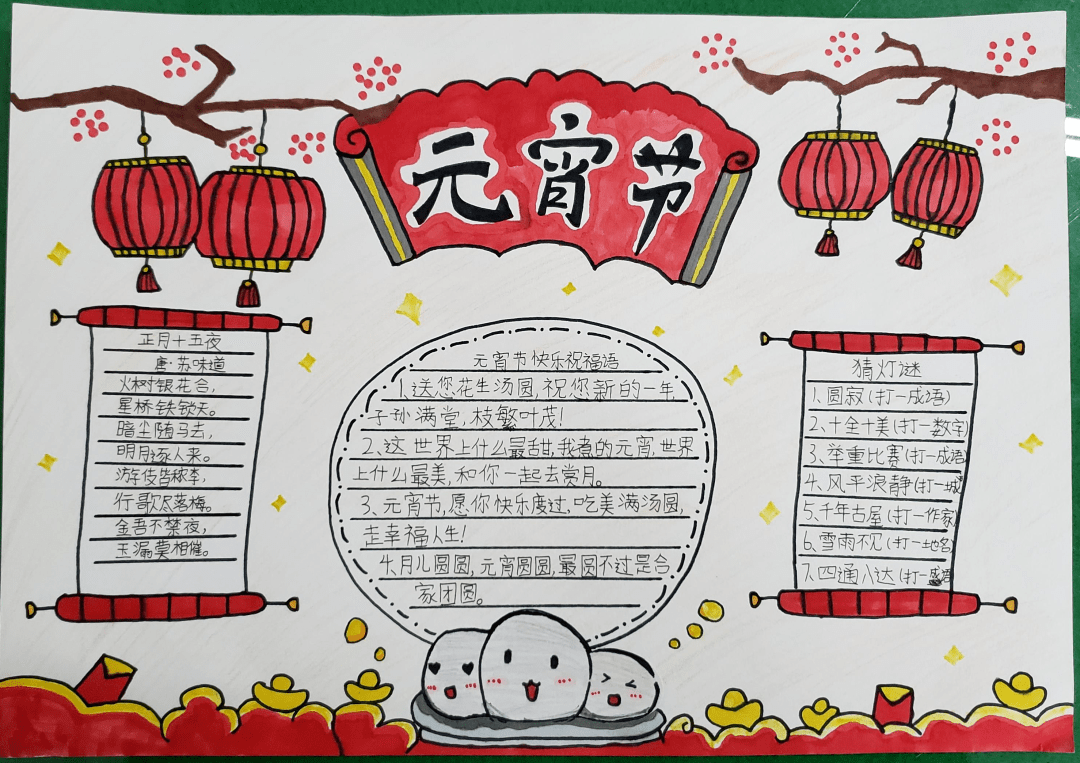 元宵节
正月十五夜
唐·苏味道
火树银花合，
星桥铁锁天。
暗尘随马去，
明月逐人来。
游伎皆秾李，
行歌尽落梅。
金吾不禁夜，
玉漏莫相催。
元宵节快乐祝福语
1.送您花生汤圆，祝您新的一年
子孙满堂，枝繁叶茂！
2、这世界上什么最甜，我煮的元宵，世界
上什么最美，和你一起去赏月。
3、元宵节，愿你快乐度过，吃美满汤圆，
走幸福人生！
4.月儿圆圆，元宵圆圆，最圆不过是合
家团圆。
猜灯谜
1.圆寂（打一成语）
2、十全十美（打一数字）
3、举重比赛（打一成语）
4.风平浪静（打一城
5、千年古屋（打一作家）
6、雪雨不见（打一地名）
7.四通八达（打一成语